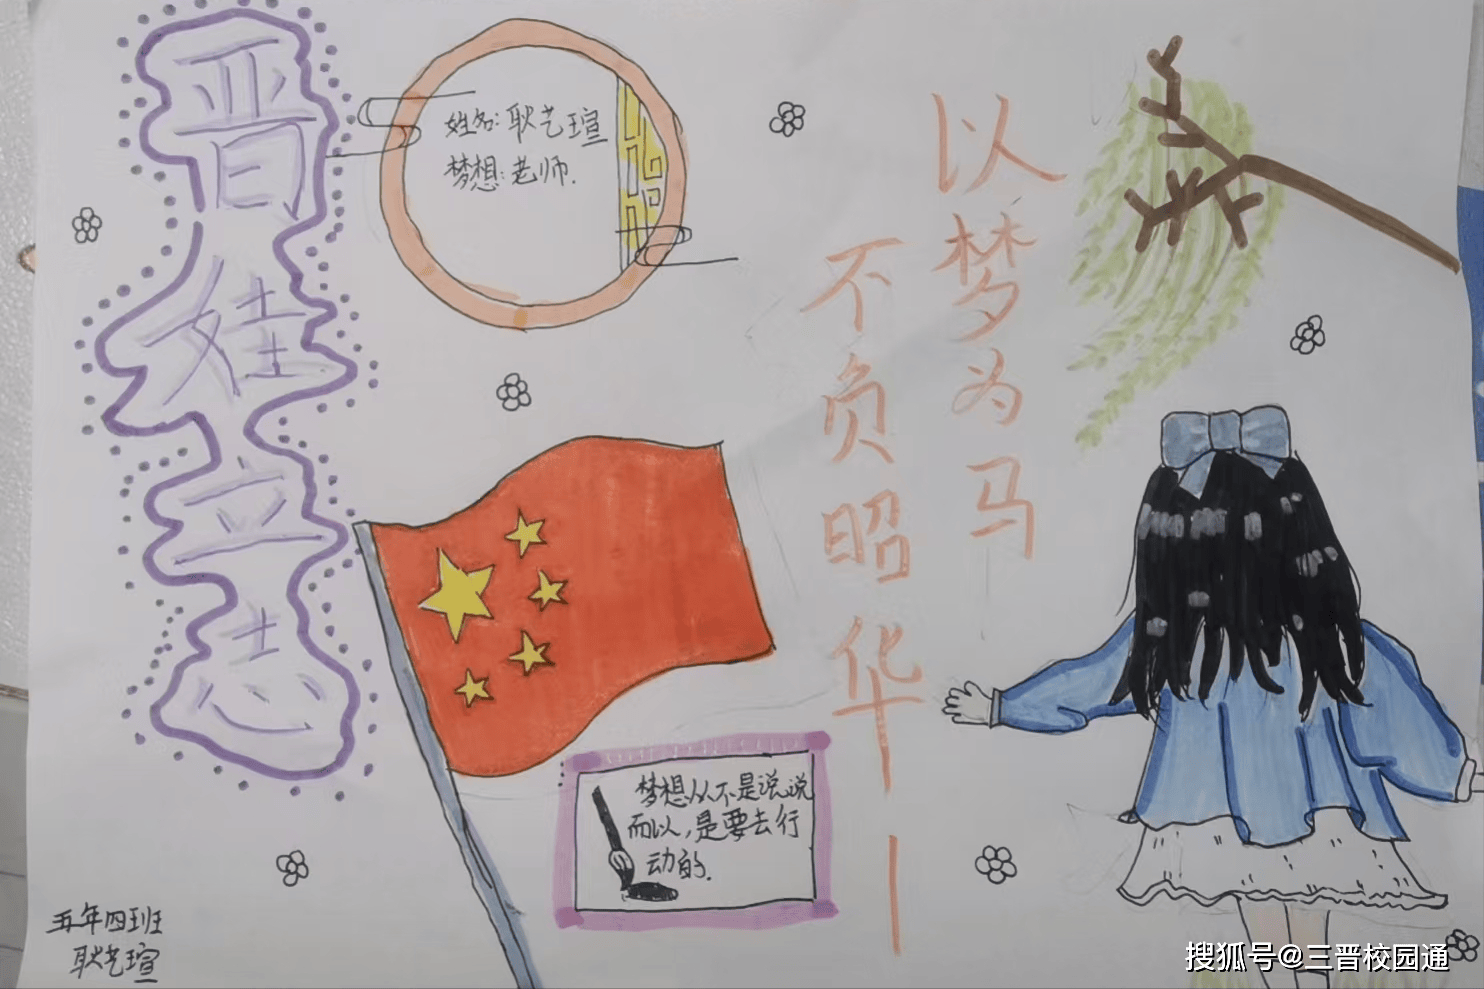 晋娃立志
姓名:耿艺瑄
梦想:老师.
以梦为马
不负昭华——
梦想从不是说说
而以,是要去行
动的.
五年四班
耿艺瑄
搜狐号@三晋校园通